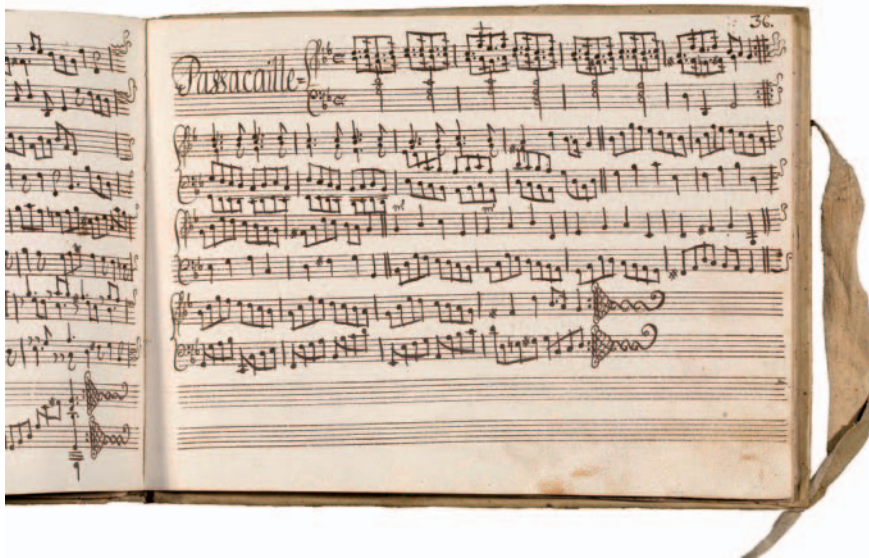 36.
Passacaille=